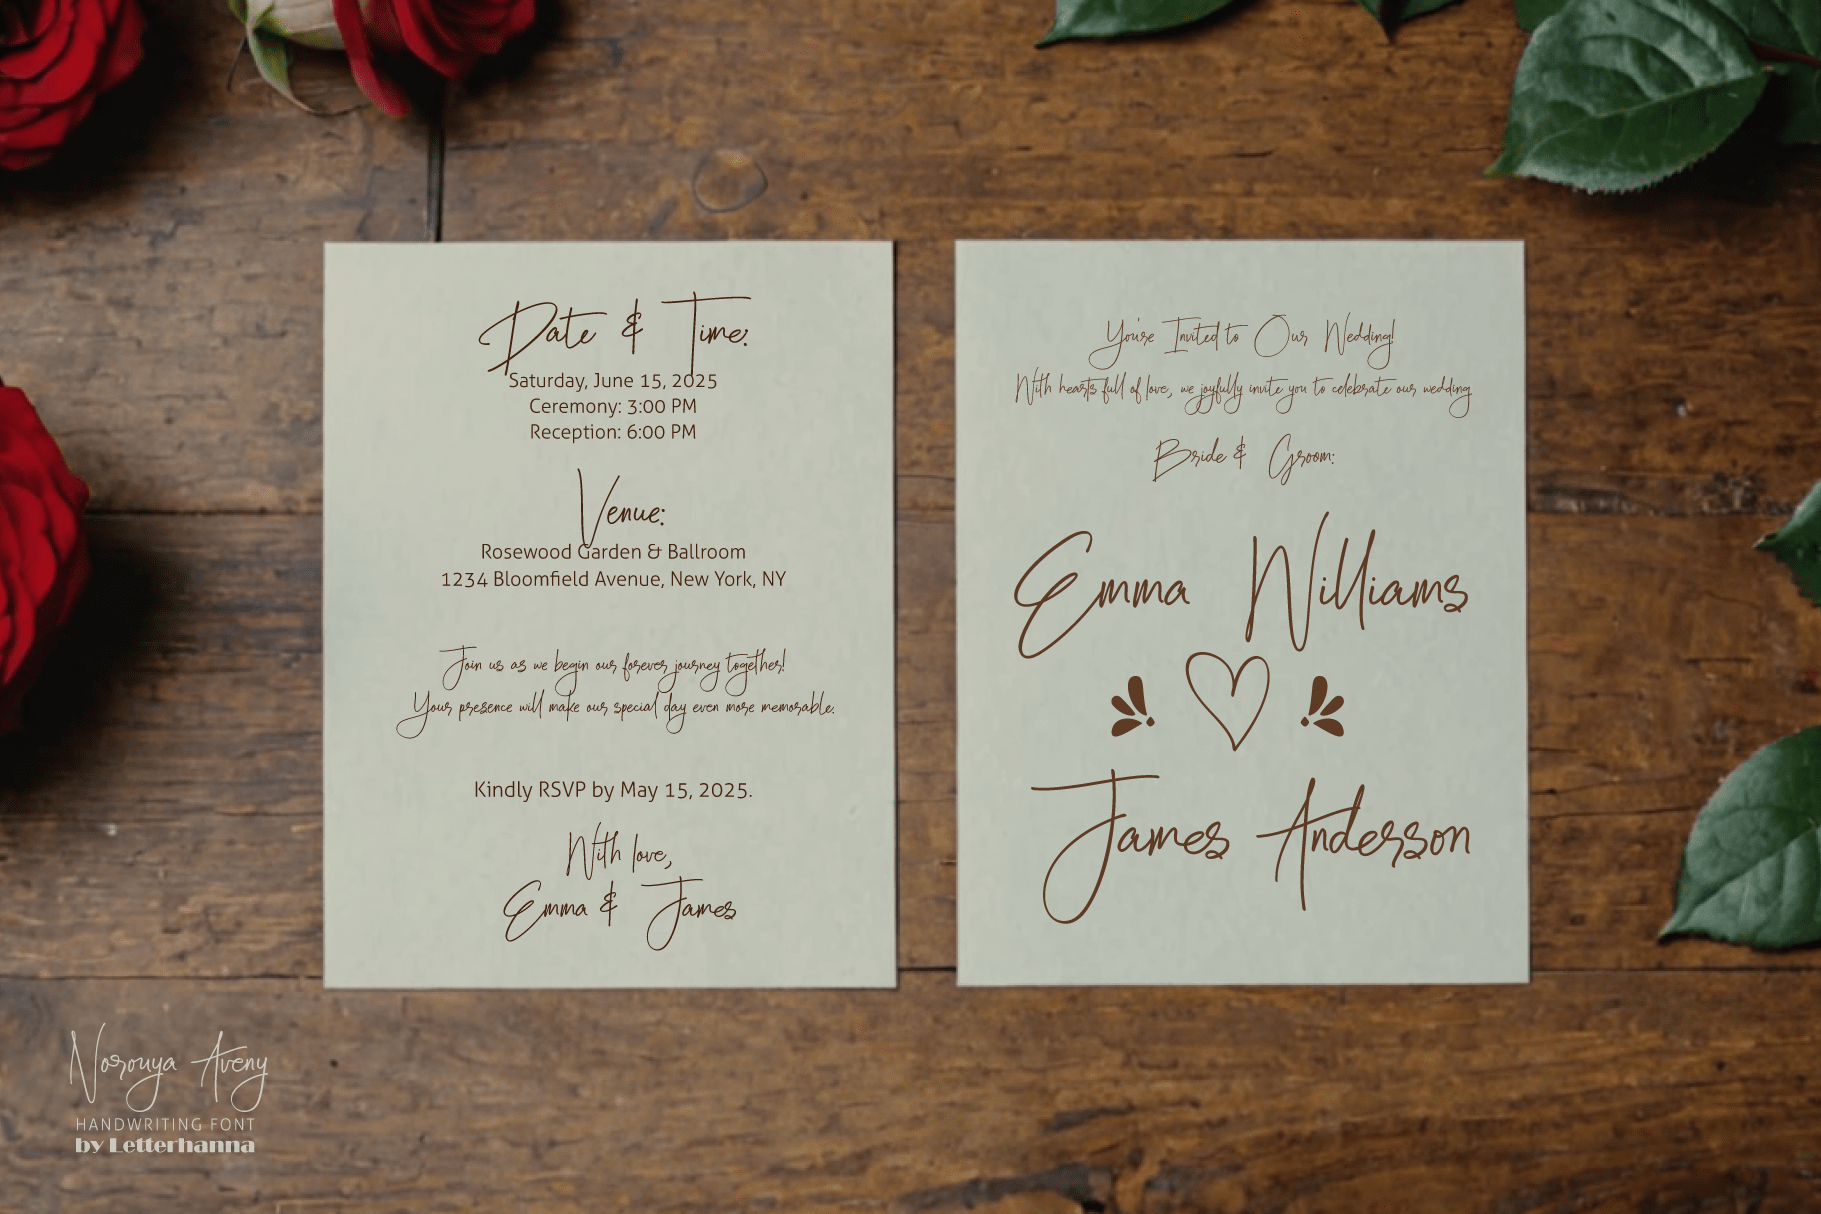 Date & Time:
Saturday, June 15, 2025
Ceremony: 3:00 PM
Reception: 6:00 PM
Venue:
Rosewood Garden & Ballroom
1234 Bloomfield Avenue, New York, NY
Join us as we begin our forever journey together!
Your presence will make our special day even more memorable.
Kindly RSVP by May 15, 2025.
With love,
Emma & James
You're Invited to Our Wedding!
With hearts full of love, we joyfully invite you to celebrate our wedding
Bride & Groom:
Emma Williams
James Anderson
Norouya Aveny
HANDWRITING FONT
by Letterhanna